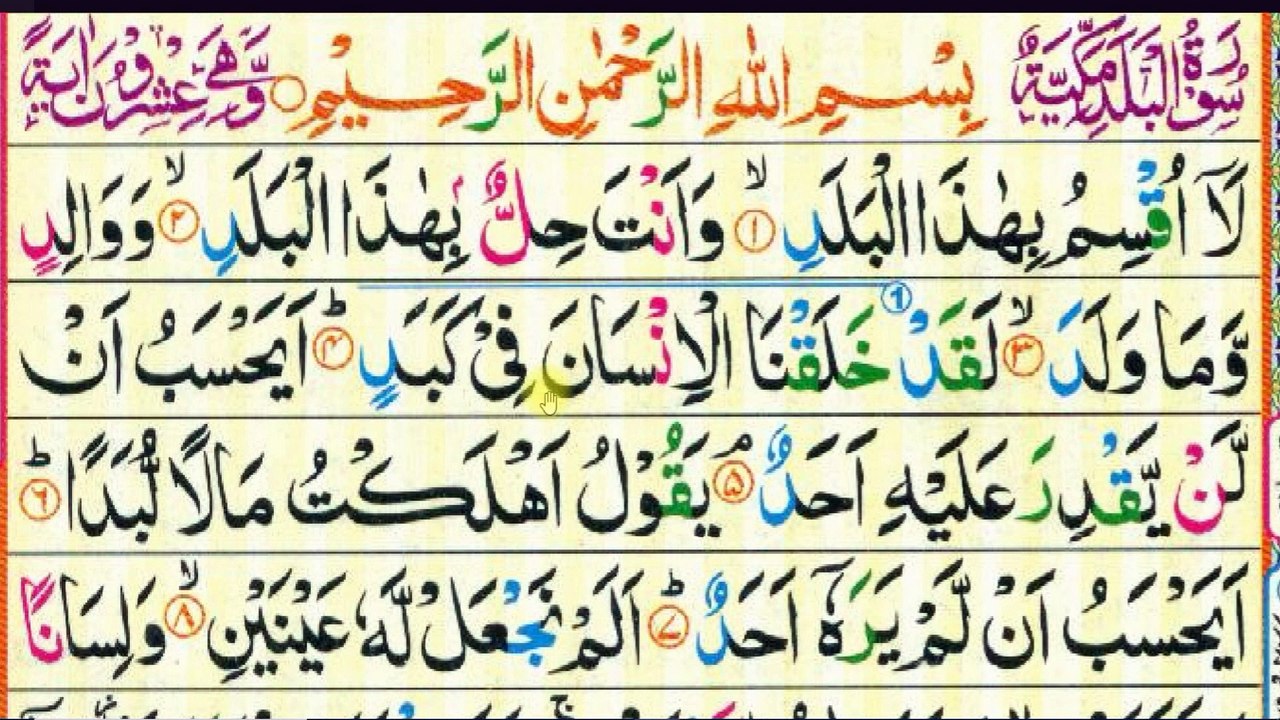 سُوْرَةُ الْبَلَدِ مَكِّيَّةٌ بِسْمِ اللّٰهِ الرَّحْمٰنِ الرَّحِيْمِ ○ وَّهِيَ عِشْرُوْنَ اٰيَةً
لَاۤ اُقْسِمُ بِهٰذَا الْبَلَدِ ۙ‏﴿۱﴾ وَاَنْتَ حِلٌّۢ بِهٰذَا الْبَلَدِ ۙ‏﴿۲﴾ وَوَالِدٍ
وَّمَا وَلَدَ ۙ‏﴿۳﴾ لَقَدْ ① خَلَقْنَا الْاِنْسَانَ فِىْ كَبَدٍ ؕ‏﴿۴﴾ اَيَحْسَبُ اَنْ
لَّنْ يَّقْدِرَ عَلَيْهِ اَحَدٌ ۘ‏﴿۵﴾ يَقُوْلُ اَهْلَكْتُ مَالًا لُّبَدًا ؕ‏﴿۶﴾
اَيَحْسَبُ اَنْ لَّمْ يَرَهٗۤ اَحَدٌ ؕ‏﴿۷﴾ اَلَمْ نَجْعَلْ لَّهٗ عَيْنَيْنِ ۙ‏﴿۸﴾ وَلِسَانًا